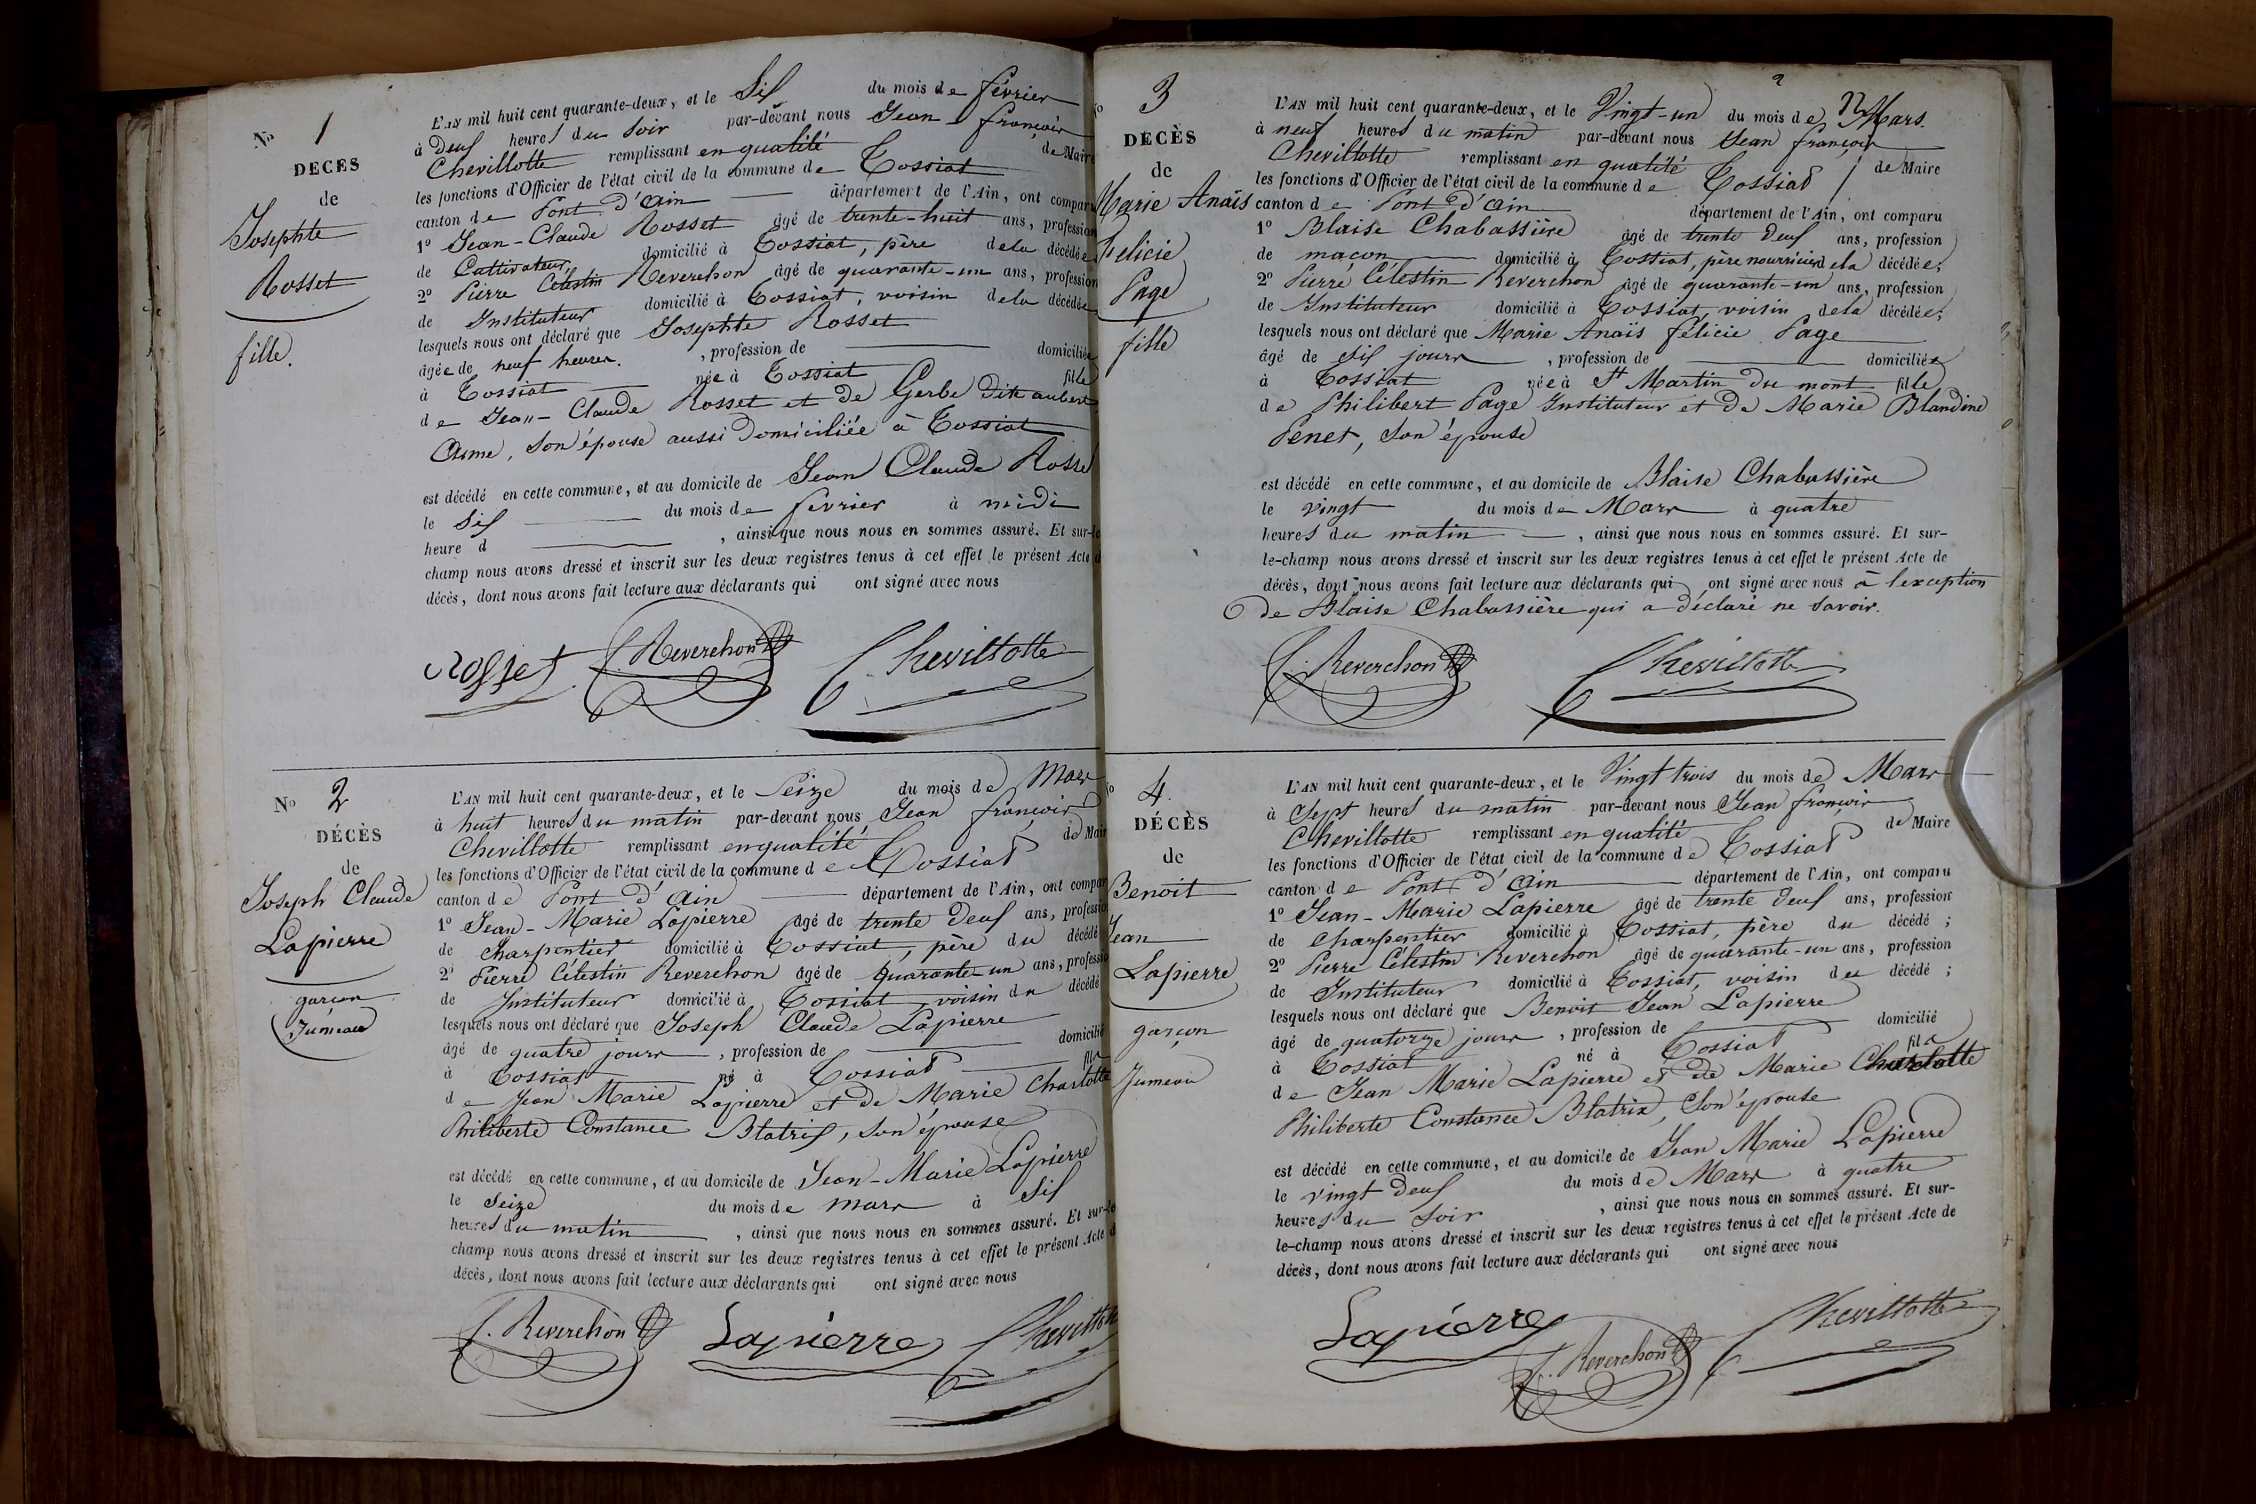 Nº 1
DÉCÈS
de
Josephte
Rosset
fille.
L'AN mil huit cent quarante-deux, et le Six du mois de février
à Deux heures du Soir par-devant nous Jean françois
Chevillotte remplissant en qualité de Maire
les fonctions d'Officier de l'état civil de la commune de Tossiat
canton de Pont d'ain département de l'Ain, ont comparu
1º Jean-Claude Rosset âgé de trente-huit ans, profession
de Cultivateur, domicilié à Tossiat, père de la décédée
2º Pierre Célestin Reverchon âgé de quarante-un ans, profession
de Instituteur domicilié à Tossiat, voisin de la décédée
lesquels nous ont déclaré que Josephte Rosset
âgée de neuf heures. , profession de domiciliée
à Tossiat née à Tossiat fille
de Jean-Claude Rosset et de Gerbe dite aubert
Anne, son épouse aussi domiciliée à Tossiat
est décédé en cette commune, et au domicile de Jean Claude Rosset
le Six du mois de février à midi
heure d , ainsi que nous nous en sommes assuré. Et sur-le
champ nous avons dressé et inscrit sur les deux registres tenus à cet effet le présent Acte d
décès, dont nous avons fait lecture aux déclarants qui ont signé avec nous
Rosset Reverchon Chevillotte
Nº 2
DÉCÈS
de
Joseph Claude
Lapierre
garçon
Jumeau
L'AN mil huit cent quarante-deux, et le Seize du mois de Mars
à huit heures du matin par-devant nous Jean françois
Chevillotte remplissant en qualité de Maire
les fonctions d'Officier de l'état civil de la commune de Tossiat
canton de Pont d'Ain département de l'Ain, ont comparu
1º Jean-Marie Lapierre âgé de trente deux ans, profession
de charpentier domicilié à Tossiat, père du décédé
2º Pierre Célestin Reverchon âgé de quarante-un ans, profession
de Instituteur domicilié à Tossiat, voisin du décédé
lesquels nous ont déclaré que Joseph Claude Lapierre
âgé de quatre jours , profession de domicilié
à Tossiat né à Tossiat fils
de Jean Marie Lapierre et de Marie Charlotte
Philiberte Constance Blatrix, son épouse
est décédé en cette commune, et au domicile de Jean-Marie Lapierre
le Seize du mois de mars à Six
heures du matin , ainsi que nous nous en sommes assuré. Et sur-le
champ nous avons dressé et inscrit sur les deux registres tenus à cet effet le présent Acte d
décès, dont nous avons fait lecture aux déclarants qui ont signé avec nous
Reverchon Lapierre Chevillotte
2
Nº 3
DÉCÈS
de
Marie Anaïs
Felicie
Page
fille
L'AN mil huit cent quarante-deux, et le Vingt-un du mois de Mars.
à neuf heures du matin par-devant nous Jean françois
Chevillotte remplissant en qualité de Maire
les fonctions d'Officier de l'état civil de la commune de Tossiat
canton de Pont d'ain département de l'Ain, ont comparu
1º Blaise Chabassière âgé de trente deux ans, profession
de maçon domicilié à Tossiat, père nourricier de la décédée;
2º Pierre Célestin Reverchon âgé de quarante-un ans, profession
de Instituteur domicilié à Tossiat, voisin de la décédée;
lesquels nous ont déclaré que Marie Anaïs félicie Page
âgé de dix jours , profession de domiciliée
à Tossiat née à St Martin du mont fille
de Philibert Page Instituteur et de Marie Blandine
Penet, son épouse
est décédé en cette commune, et au domicile de Blaise Chabassière
le vingt du mois de Mars à quatre
heures du matin , ainsi que nous nous en sommes assuré. Et sur-
le-champ nous avons dressé et inscrit sur les deux registres tenus à cet effet le présent Acte de
décès, dont nous avons fait lecture aux déclarants qui ont signé avec nous à l'exception
de Blaise Chabassière qui a déclaré ne savoir.
Reverchon Chevillotte
Nº 4.
DÉCÈS
de
Benoit
Jean
Lapierre
garçon
Jumeau
L'AN mil huit cent quarante-deux, et le Vingt trois du mois de Mars
à Sept heures du matin par-devant nous Jean françois
Chevillotte remplissant en qualité de Maire
les fonctions d'Officier de l'état civil de la commune de Tossiat
canton de Pont d'ain département de l'Ain, ont comparu
1º Jean-Marie Lapierre âgé de trente deux ans, profession
de charpentier domicilié à Tossiat, père du décédé ;
2º Pierre Célestin Reverchon âgé de quarante-un ans, profession
de Instituteur domicilié à Tossiat, voisin du décédé ;
lesquels nous ont déclaré que Benoit Jean Lapierre
âgé de quatorze jours , profession de domicilié
à Tossiat né à Tossiat fils
de Jean Marie Lapierre et de Marie Charlotte
Philiberte Constance Blatrix, son épouse
est décédé en cette commune, et au domicile de Jean Marie Lapierre
le vingt deux du mois de Mars à quatre
heures du Soir , ainsi que nous nous en sommes assuré. Et sur-
le-champ nous avons dressé et inscrit sur les deux registres tenus à cet effet le présent Acte de
décès, dont nous avons fait lecture aux déclarants qui ont signé avec nous
Lapierre Reverchon Chevillotte